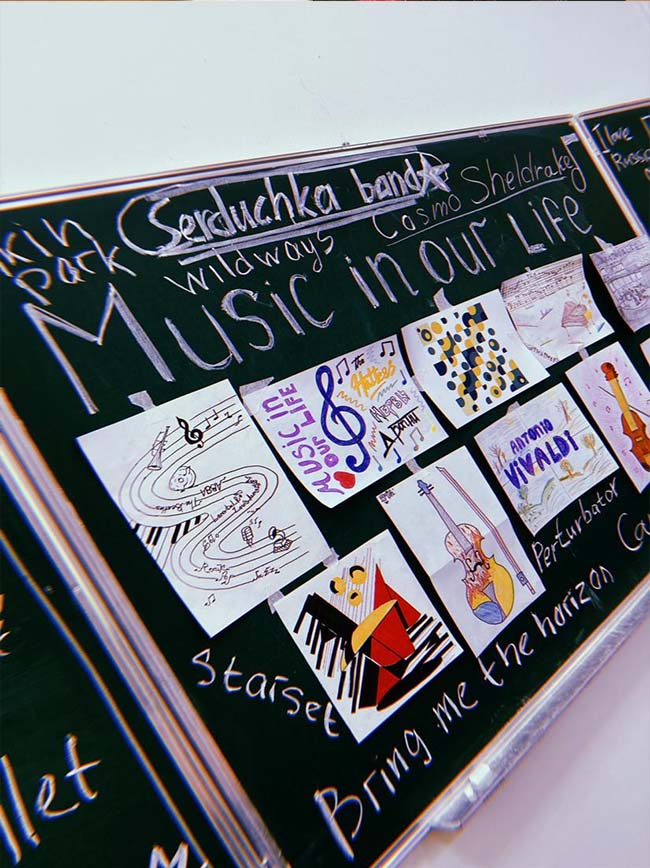 kin
park
Serduchka band
wildways
Cosmo Sheldrake
I love
Music in our Life
MUSIC in
OUR LIFE
the
Hatters
ANTONIO
VIVALDI
ABBA
The Beatles
Perturbator
Ca
Starset
Bring me the horizon
llet
M